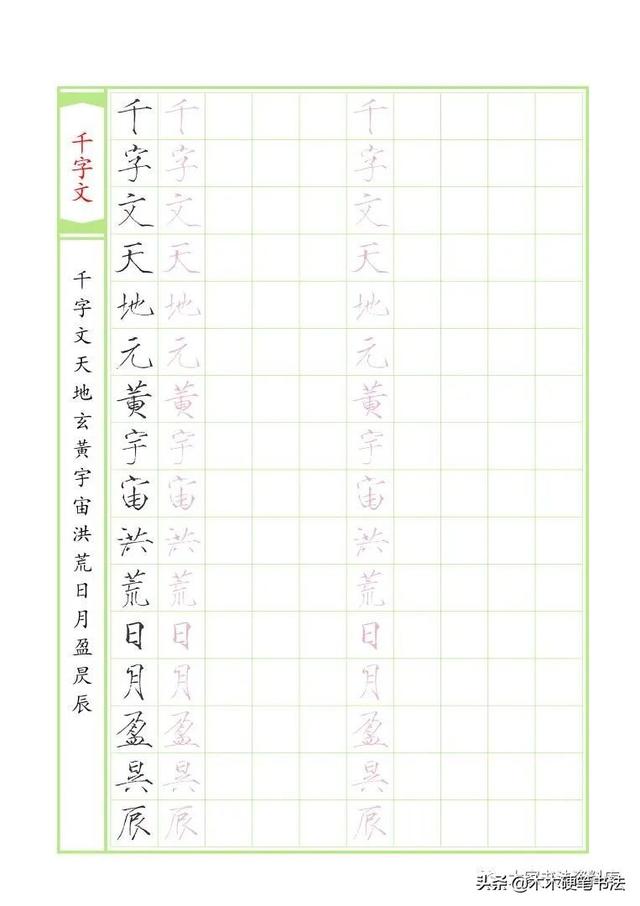 千字文
千字文天地玄黃宇宙洪荒日月盈昃辰
千字文天地元黃宇宙洪荒日月盈昃辰
千字文天地元黃宇宙洪荒日月盈昃辰
千字文天地元黃宇宙洪荒日月盈昃辰
头条 @木木硬笔书法